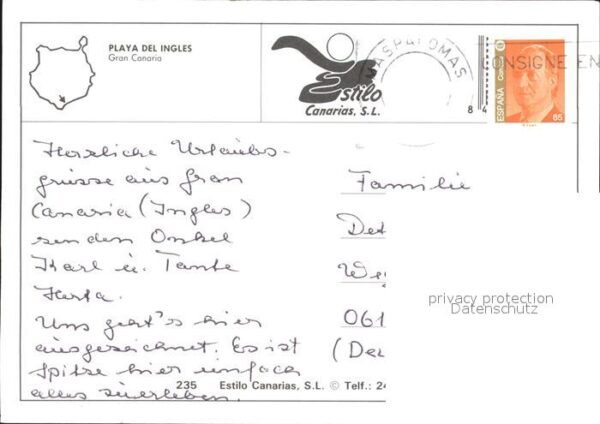 PLAYA DEL INGLES
Gran Canaria
Estilo
Canarias, S.L.
ASPALOMAS
CONSIGNE EN
ESPAÑA
Correos
65
8 4
Herzliche Urlaubs-
grüsse aus Gran
Canaria (Ingles)
senden Onkel
Karl u. Tante
Herta.
Uns geht's hier
ausgezeichnet. Es ist
Spitze hier einfach
alles zu erleben.
Familie
De
We
061
(De
privacy protection
Datenschutz
235 Estilo Canarias, S.L. © Telf.: 24